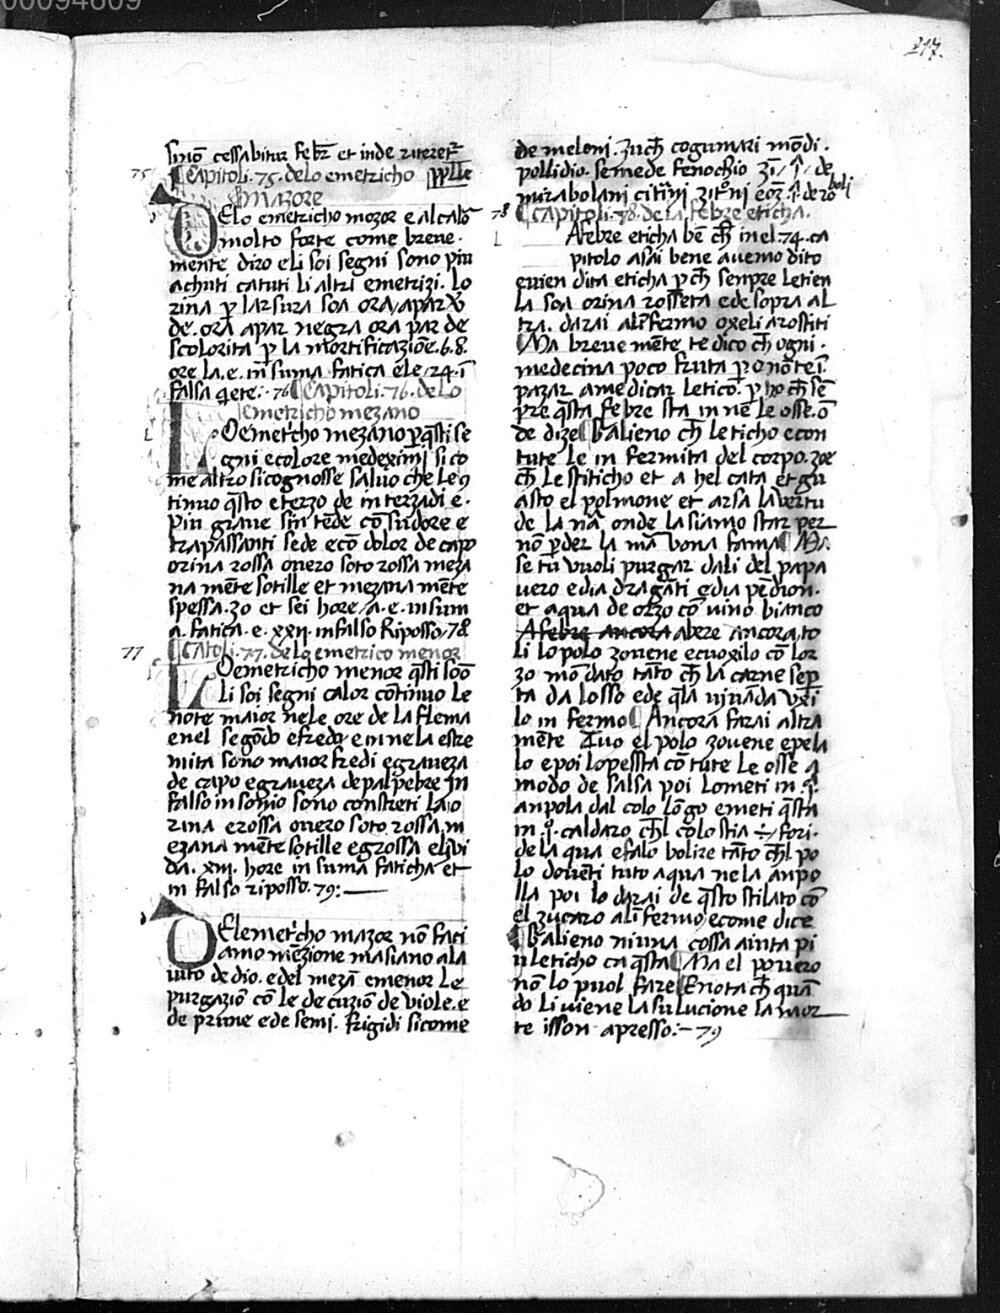 00094609
217.
sinō cessabitur febr̄ et inde riteret̄
75 Capitoli .75. de lo emetricho
mazore
DElo emetricho mozor e al calō
molto forte come breve.
mente diro e li soi segni sono piu
achuti ca tuti li altri emetrizi. Lo
rina p larsura soa ora apar
de. ora apar negra ora par de
scolorita p la mortificazioē. 6. 8.
ore la .e. in suma fatica ele .24. ī
falsa qete :· 76 Capitoli .76. de Lo
emetricho mezano
LOemetricho mezano p q̄sti se
gni e colore medeximi si co
me altro si cognosse salvo che le 9
tinuo q̄sto e terzo de in terzadi e.
piu grave sin tēde cō sudore e
trapassanti sede ecō dolor de capo
orina rossa overo soto rossa meza
na mēte sotille et mezana mēte
spessa. 30 et sei hore /a. e. in sum
a. fatica. e. xxij. in falso Riposso/ 78
77 Catoli .77. de lo emetrico menor
LOemetricho menor q̄sti soō
li soi segni calor cōtinuo Le
note maior ne le ore de la flema
e nel segōdo e fredo e in ne la estre
mita sono maior fredi e graveza
de capo e graveza de palpebre In
falso in sonio sono constreti La o
rina e rossa overo soto rossa m
ezana mēte sotille e grossa el svi
da. xiij. hore in suma faticha et
in falso riposso. 79:
DElemetricho mazor nō faci
amo mēzione ma siano a la
iuto de dio. e del mezā e menor Le
purgaziō cō le decuziōn de viole. e
de prune e de semi. frigidi sicome
de meloni. zuch̄ cogumari mōdi.
pollidio. semede fenochio
mirabolani citrini
78 Capitoli .78. de la febre eticha.
Afebre eticha bē ch̄ in el .74. ca
pitolo asai bene avemo dito
e vien dita eticha p ch̄ senpre le tien
la soa orina rosseta e de sopra al
tra. darai al īfermo oxeli arostiti
Ma breve mēte te dico ch̄ ogni.
medecina poco fruta p o nō te ī
pazar a medicar letico. p ho ch̄ sē
pre q̄sta febre sta in nē le osse. ō
de dize Galieno ch̄ leticho e con
tute le in fermita del corpo. zoe
ch̄ le stiticho et a hel cata et gu
asto el polmone et arsa la vertu
de la nā. onde lasiamo star per
nō pder la mā bona fama Ma.
se tu vuoli purgar dali del papa
vero e dia dragāti e dia pēdion.
et aqua de orzo cō vino bianco
A febre ancora abere ancora to
li lo polo zovene e cuoxilo cō lor
zo mō dato tāto ch̄ la carne sep
ta da losso e de q̄la vivāda
lo in fermo Ancora farai altra
mēte Tuo el polo zovene e pela
lo e poi lo pessta cō tute le osse a
modo de salsa poi lo meti in
anpola dal colo lōgo e meti q̄sta
in q̄. caldaro ch̄l colo stia fori.
de la qua e falo bolire tāto ch̄l po
lo doventi tuto aqua ne la anpo
lla poi lo darai de q̄sto stilato cō
el zucaro al īfermo e come dice
Galieno niuna cossa aiuta pi
u leticho ca q̄sta Ma el povero
nō lo puol fare E nota ch̄ quā
do li viene la sulucione la mor
te isson apresso:— 79